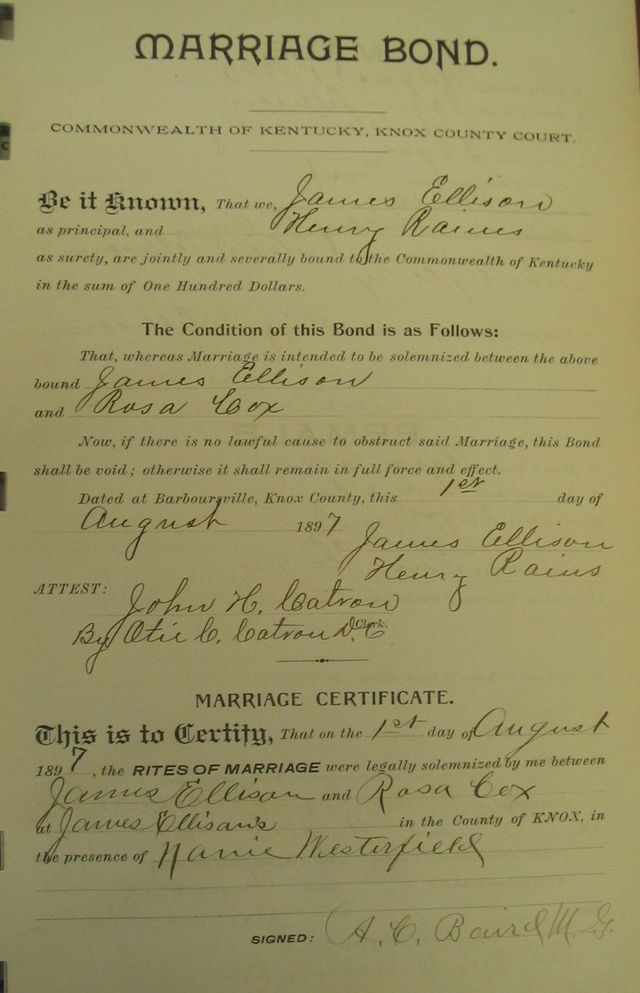 MARRIAGE BOND.
COMMONWEALTH OF KENTUCKY, KNOX COUNTY COURT.
Be it Known, That we, James Ellison
as principal, and Henry Raines
as surety, are jointly and severally bound to the Commonwealth of Kentucky
in the sum of One Hundred Dollars.
The Condition of this Bond is as Follows:
That, whereas Marriage is intended to be solemnized between the above
bound James Ellison
and Rosa Cox
Now, if there is no lawful cause to obstruct said Marriage, this Bond
shall be void; otherwise it shall remain in full force and effect.
Dated at Barboursville, Knox County, this 1st day of
August 1897
James Ellison
Henry Rains
ATTEST: John H. Catron
By Otis C. Catron D.C. Clerk.
MARRIAGE CERTIFICATE.
This is to Certify, That on the 1st day of August
1897, the RITES OF MARRIAGE were legally solemnized by me between
James Ellison and Rosa Cox
at James Ellison's in the County of KNOX, in
the presence of Westerfield
SIGNED: A. C. Baird M. G.